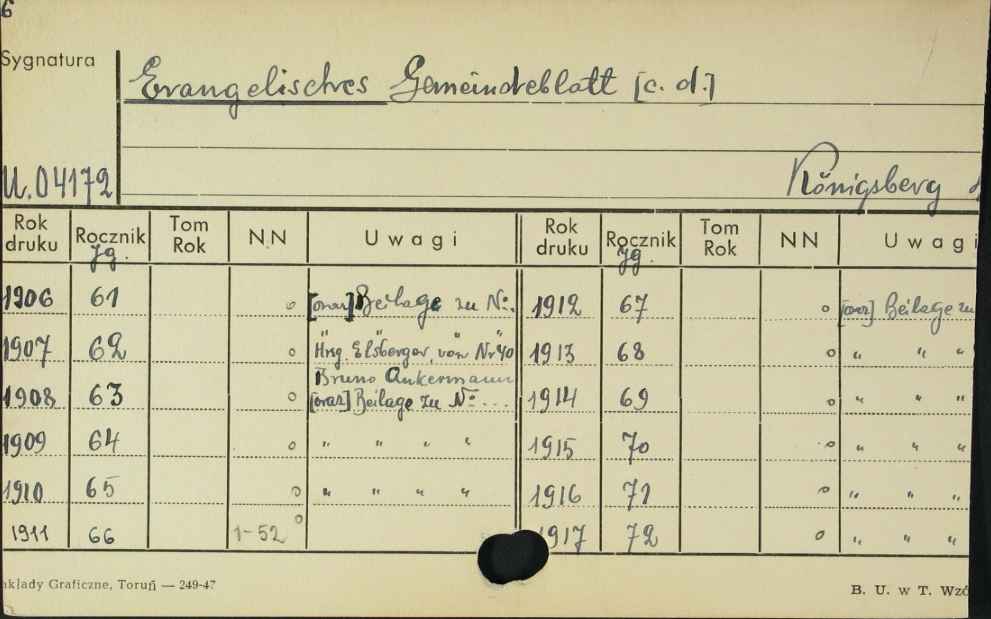 6
Sygnatura
Evangelisches Gemeindeblatt [c. d.]
U.04172
Königsberg
Rok druku Rocznik Jg. Tom Rok NN Uwagi Rok druku Rocznik Jg. Tom Rok NN Uwagi
1906 61 o [oraz] Beilage zu No. 1912 67 o [oraz] Beilage zu
" " " "
1907 62 o Hrsg. Elsberger, von Nr 40 1913 68 o " " "
Bruno Ankermann
1908 63 o [oraz] Beilage zu No ... 1914 69 o " " "
1909 64 o " " " " 1915 70 o " " "
1910 65 o " " " " 1916 71 o " " "
1911 66 1-52 o 1917 72 o " " "
akłady Graficzne, Toruń — 249-47
B. U. w T. Wzó